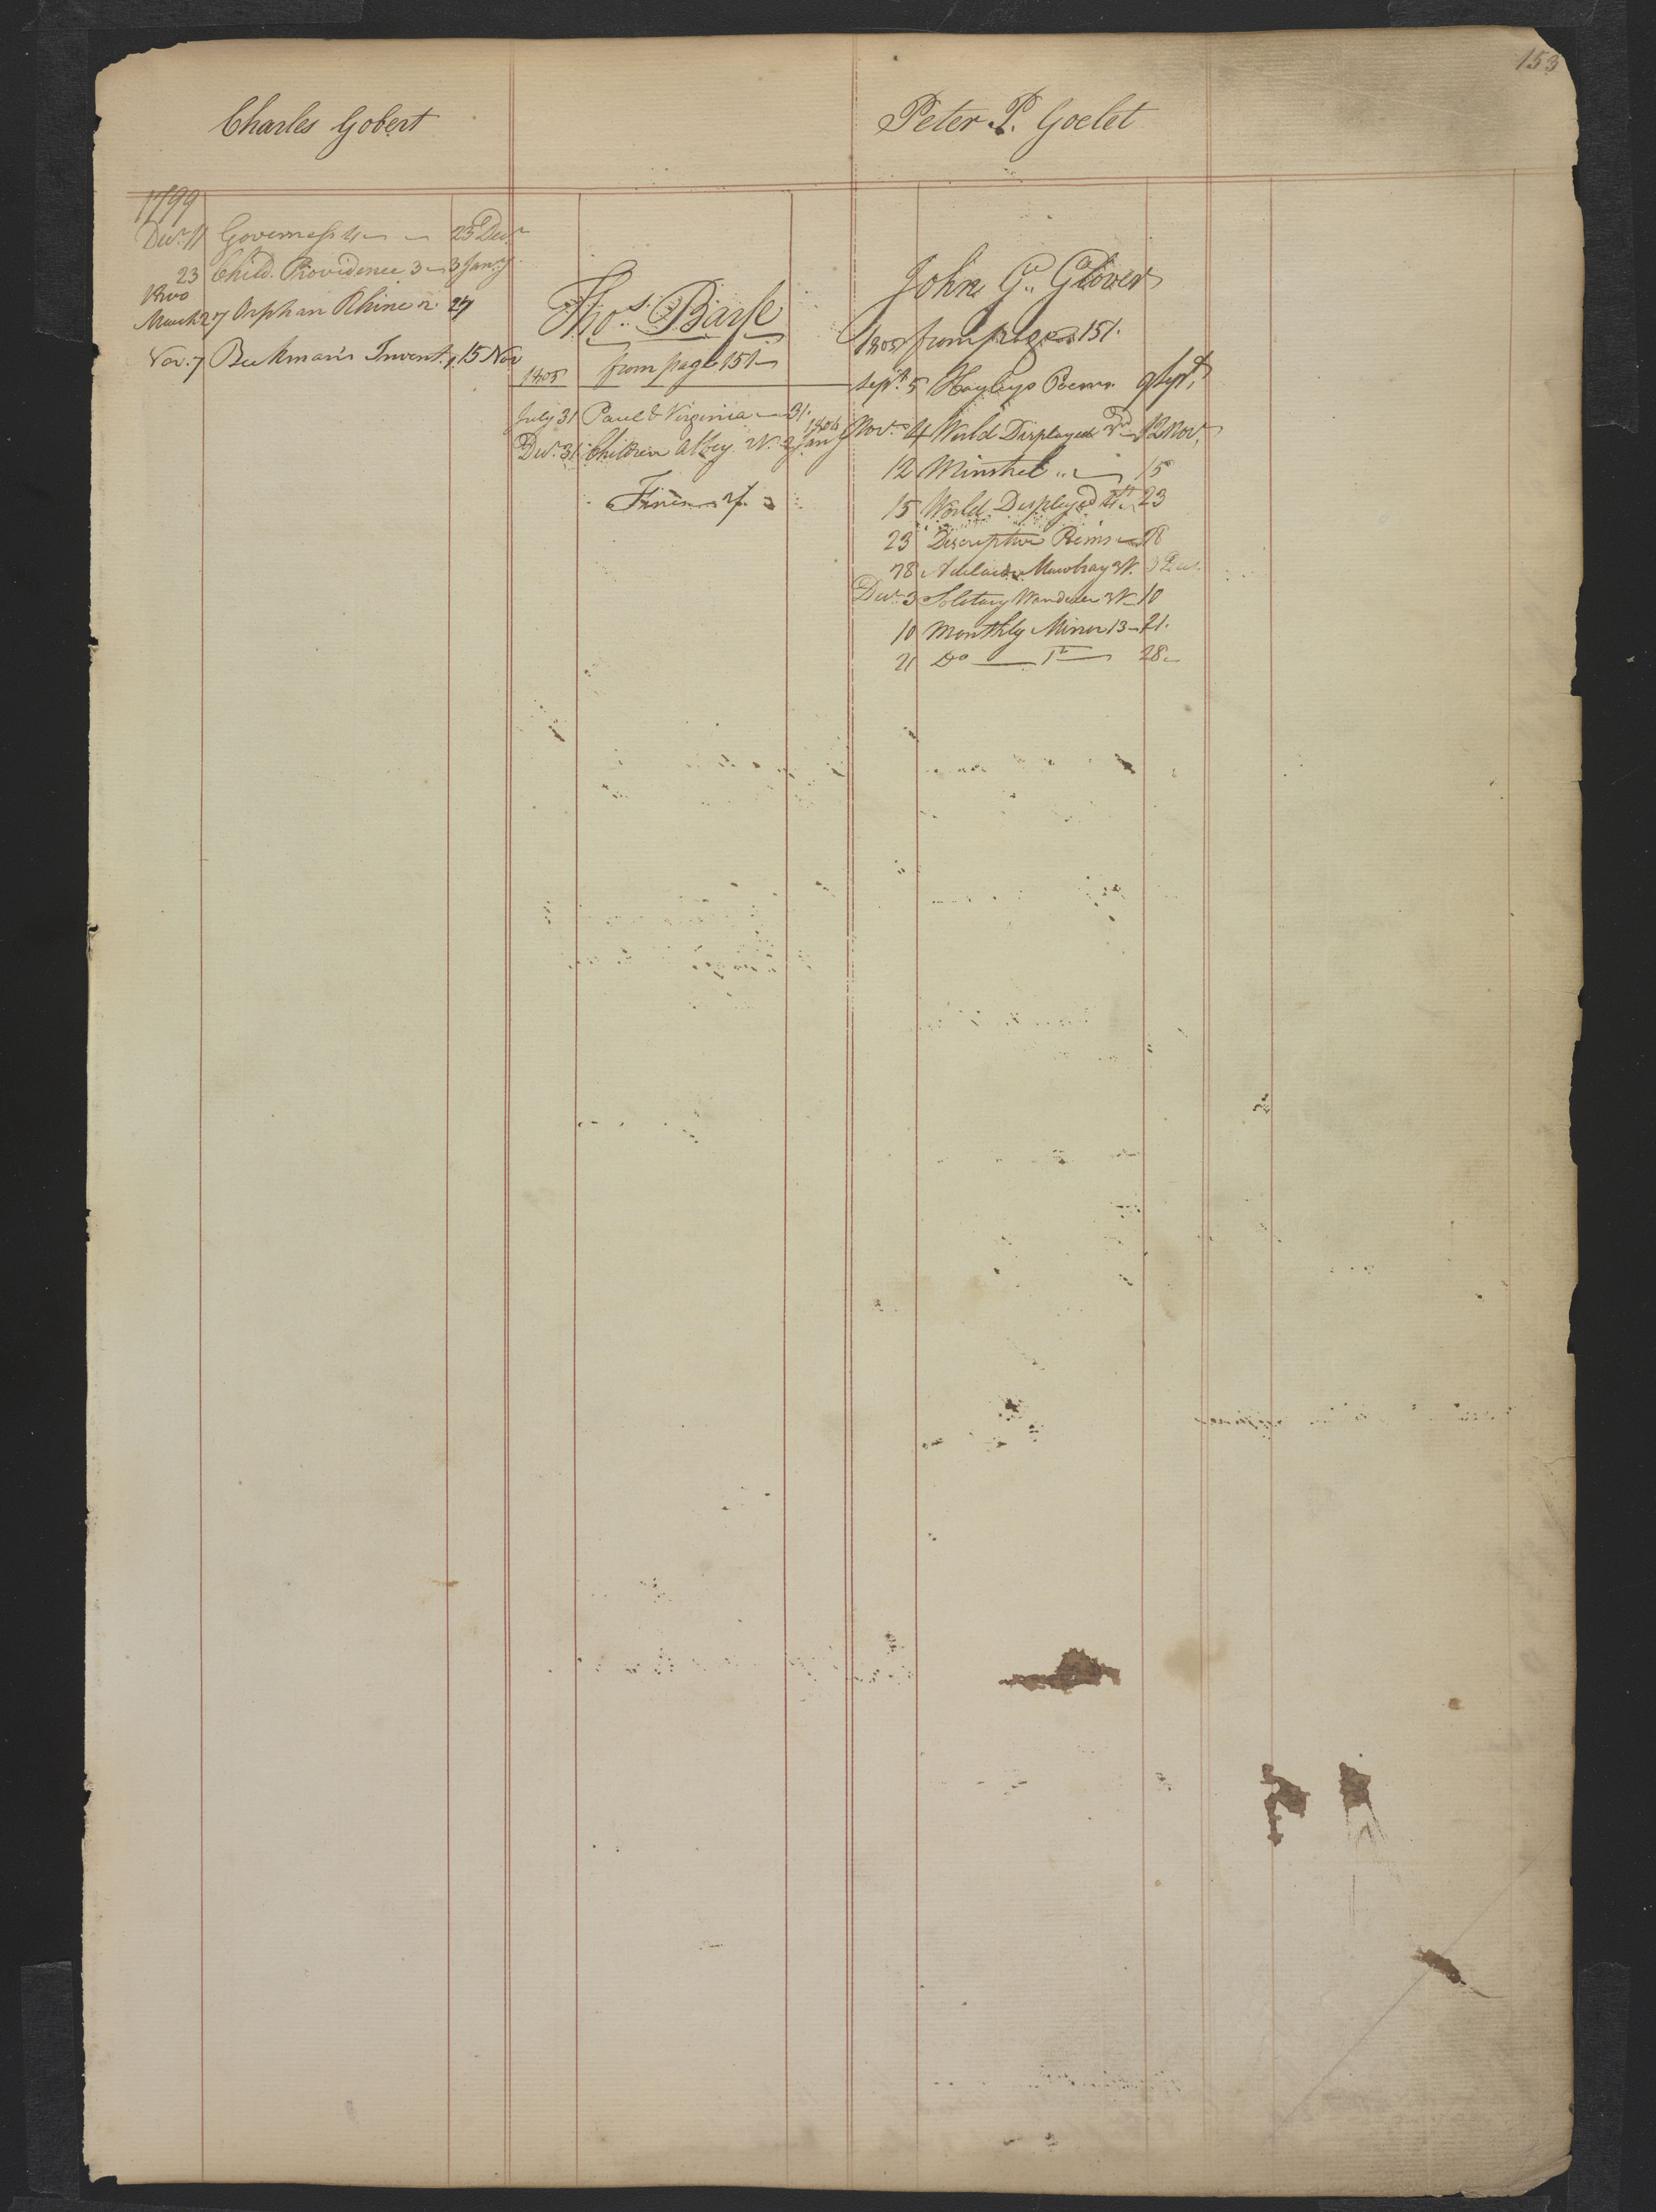 153
Charles Gobert
1799
Decr. 11 Governess 4 23 Decr
23 Child. Providence 3 3 Jany
1800
March 27 Orphan Rhine 2 27
Nov. 7 Beckman's Invent. 1. 15 Nov
Thos. Barse
1805 from page 151
July 31 Paul & Virginia 31.
Decr. 31 Children Abbey. 2 1806 Jany
Fines
Peter P. Goelet
John G. Glover
1805 from page 151.
Sept. 5 Hayleys Poems 9 Sept.
Nov. 4 World Displayed 3d 12 Nov.
12 Minstrel 15
15 World Displayed 4th 23
23 Descriptive Poems 28
28 Adelaide Mowbray 3 Decr.
Decr. 3 Solitary Wanderer 10
10 Monthly Mirror 13 21.
21 Do 28